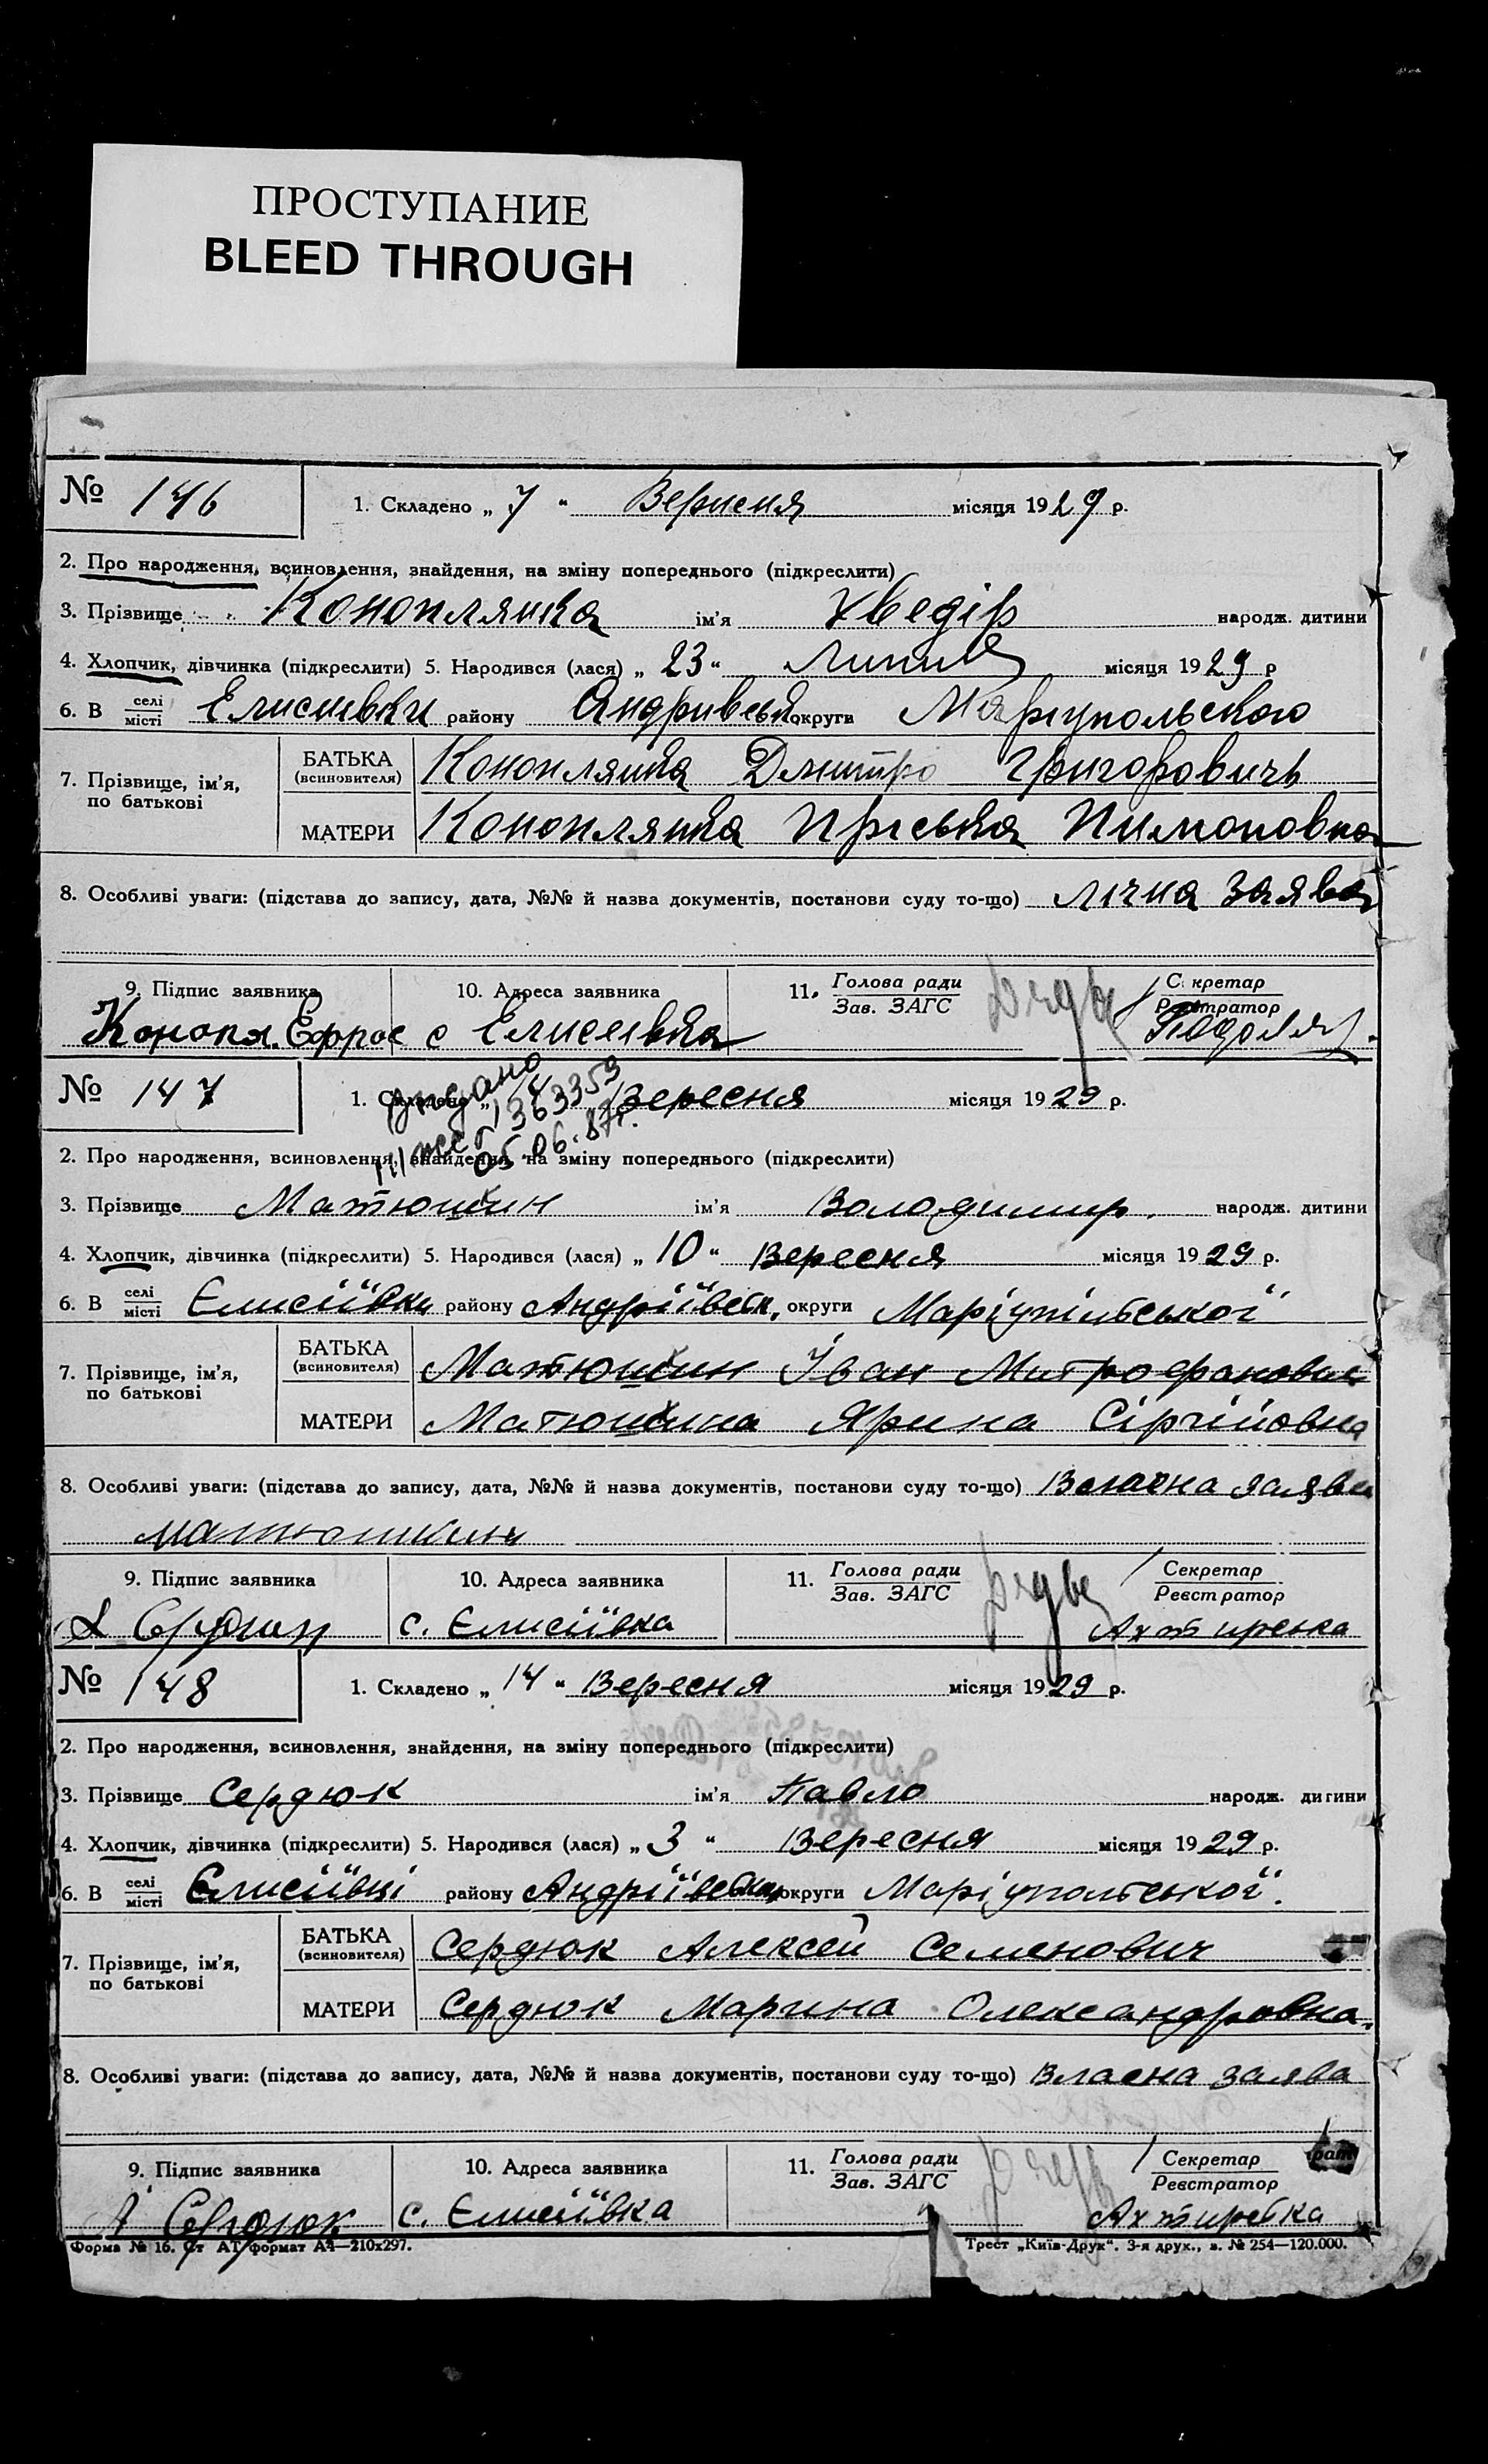 ПРОСТУПАНИЕ
BLEED THROUGH
№ 146 1. Складено „ 7 “ Версеня місяця 1929 р.
2. Про народження, всиновлення, знайдення, на зміну попереднього (підкреслити)
3. Прізвище Конопляшка ім'я Хведір народж. дитини
4. Хлопчик, дівчинка (підкреслити) 5. Народився (лася) „ 23 “ Липня місяця 1929 р
6. В селі місті Елисиевки району Андривськ. округи Маріупольського
7. Прізвище, ім'я, по батькові
БАТЬКА (всиновителя) Конопляшка Дмитро Григоровичь
МАТЕРИ Конопляшка Пріська Пимоновна
8. Особливі уваги: (підстава до запису, дата, №№ й назва документів, постанови суду то-що) лічна заява
9. Підпис заявника 10. Адреса заявника 11. Голова ради Зав. ЗАГС Секретар Реєстратор
Конопл. Ефрос с Елисеевка
№ 147 1. Складено „ 14 “ Вересня місяця 1929 р.
Видано
363353
05.06.87г.
2. Про народження, всиновлення, знайдення, на зміну попереднього (підкреслити)
3. Прізвище Матюшкин ім'я Володимир. народж. дитини
4. Хлопчик, дівчинка (підкреслити) 5. Народився (лася) „ 10 “ Вересня місяця 1929 р.
6. В селі місті Єлисіївки району Андріївськ. округи Маріупільської
7. Прізвище, ім'я, по батькові
БАТЬКА (всиновителя) Матюшкин Іван Митрофанович
МАТЕРИ Матюшкина Ярина Сіргійовна
8. Особливі уваги: (підстава до запису, дата, №№ й назва документів, постанови суду то-що) Власна заява
Матюшкин
9. Підпис заявника 10. Адреса заявника 11. Голова ради Зав. ЗАГС Секретар Реєстратор
с. Єлисіївка Ахтирська
№ 148 1. Складено „ 14 “ Вересня місяця 1929 р.
2. Про народження, всиновлення, знайдення, на зміну попереднього (підкреслити)
3. Прізвище Сердюк ім'я Павло народж. дитини
4. Хлопчик, дівчинка (підкреслити) 5. Народився (лася) „ 3 “ Вересня місяця 1929 р.
6. В селі місті Єлисіївці району Андріївськ округи Маріупольської.
7. Прізвище, ім'я, по батькові
БАТЬКА (всиновителя) Сердюк Алексей Семенович
МАТЕРИ Сердюк Марина Олександровна.
8. Особливі уваги: (підстава до запису, дата, №№ й назва документів, постанови суду то-що) Власна заява
9. Підпис заявника 10. Адреса заявника 11. Голова ради Зав. ЗАГС Секретар Реєстратор
А Сердюк с. Єлисіївка Ахтирська
Форма № 16. Ст АТ формат А4—210х297. Трест „Київ-Друк“. 3-я друк., з. № 254—120.000.